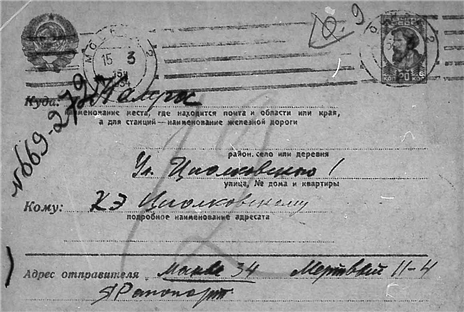 МОСКВА
15 3
20
Куда: г. Калуга
наименование места, где находится почта и области или края,
а для станций—наименование железной дороги
№669-279
район, село или деревня
Ул. Циолковского 1
улица, № дома и квартиры
Кому: КЭ Циолковскому
подробное наименование адресата
Адрес отправителя Москва 34 Мертвый 11-4
Рапопорт